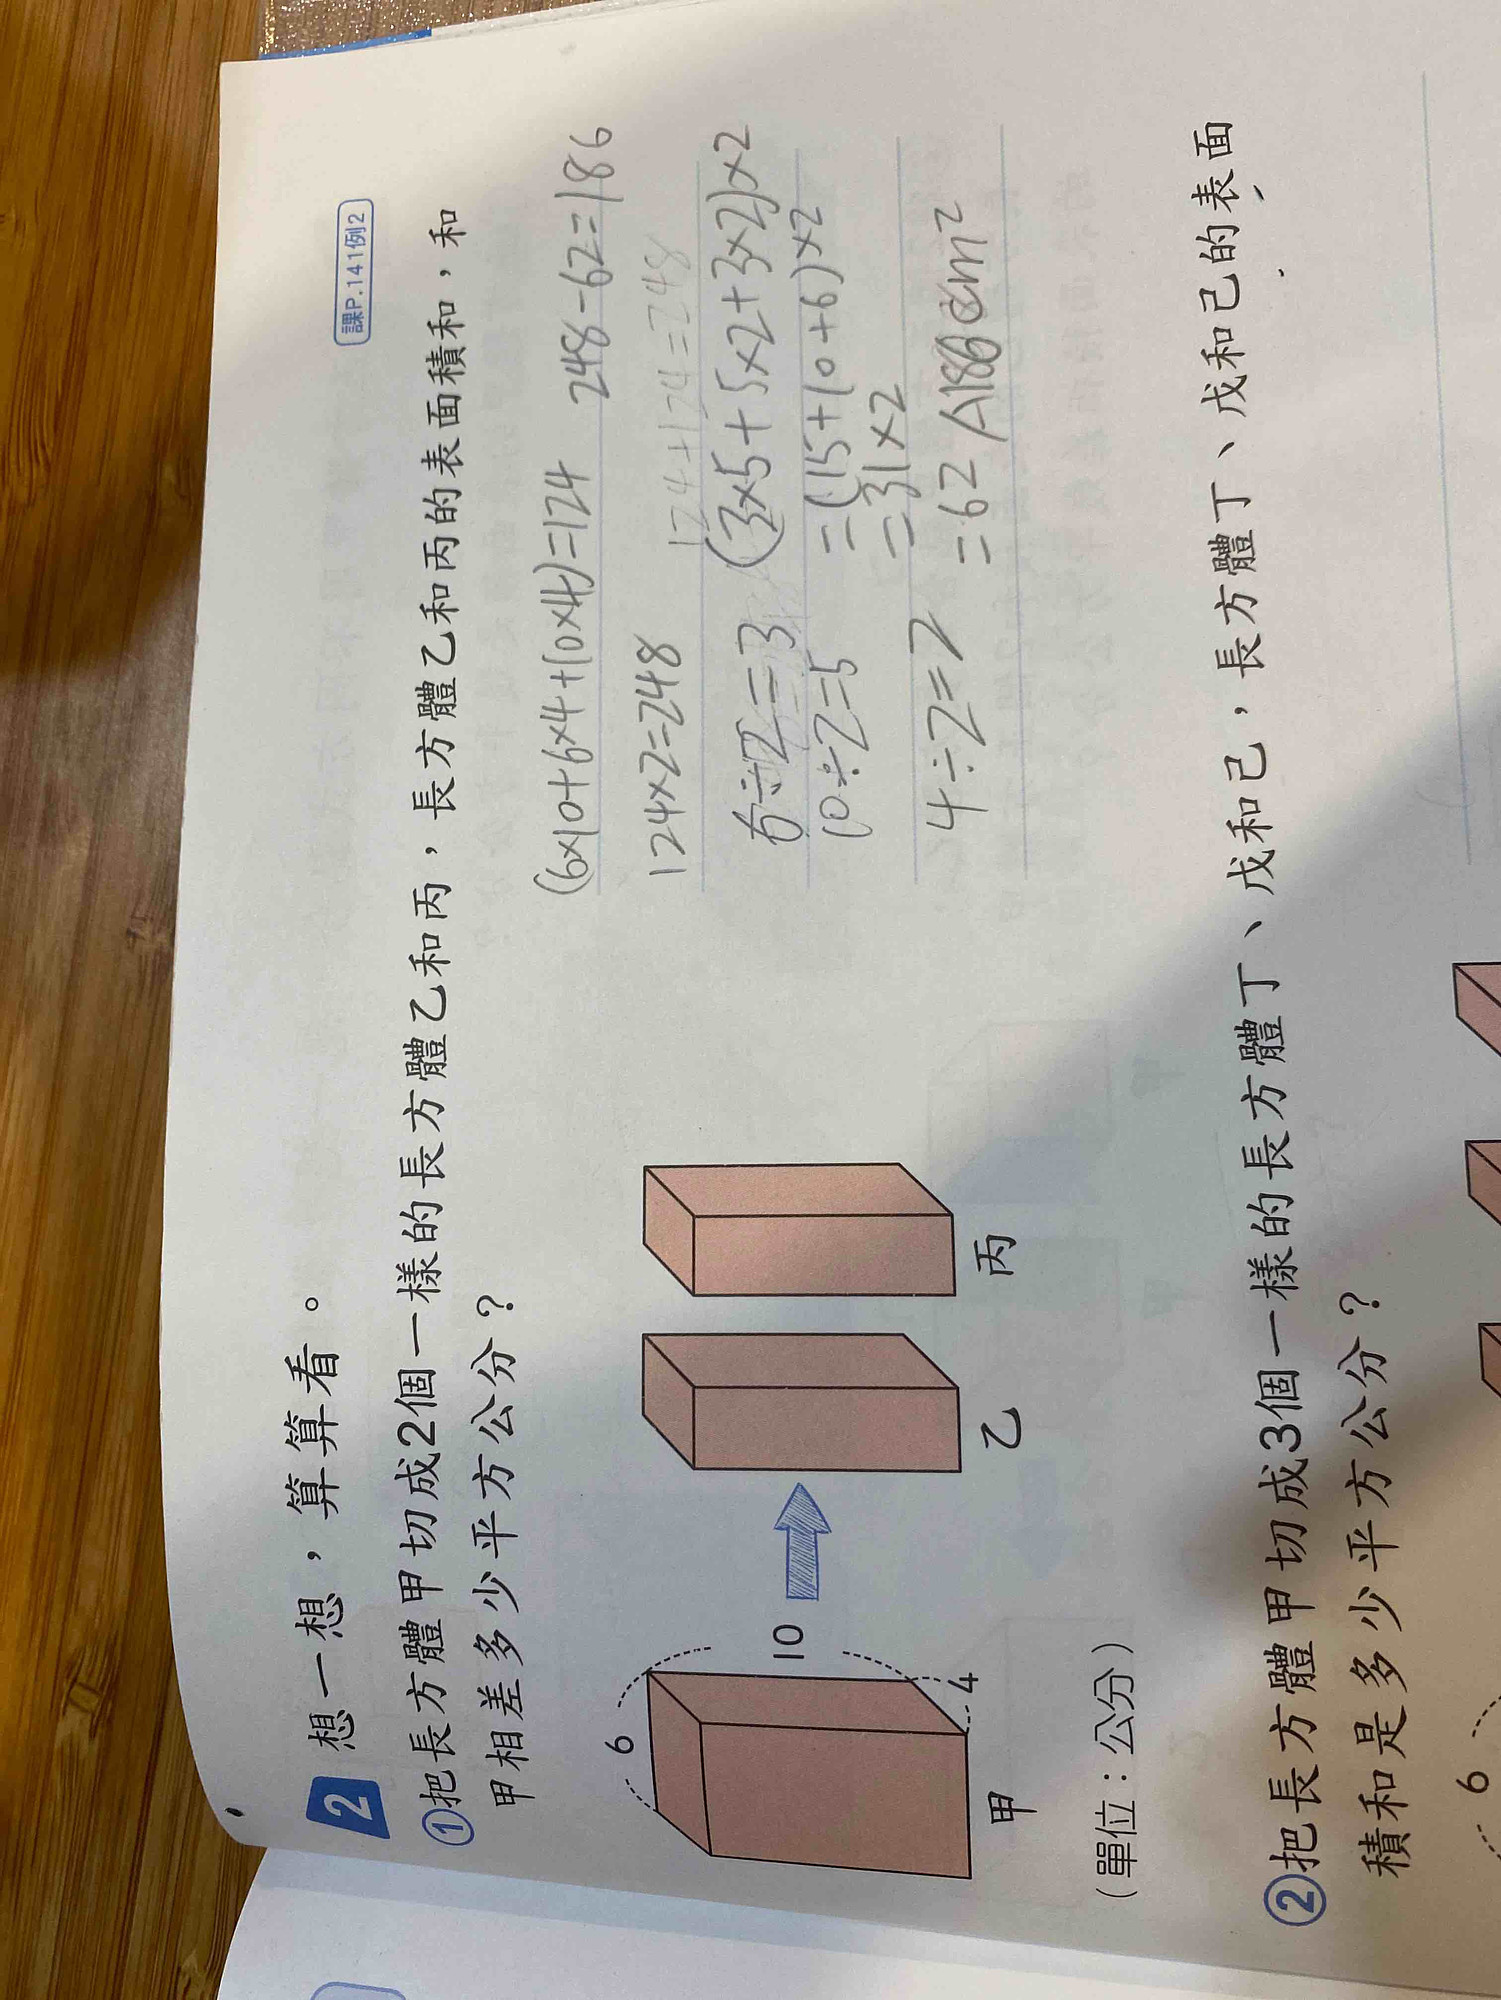 課P.141例2
2 想一想,算算看。
①把長方體甲切成2個一樣的長方體乙和丙,長方體乙和丙的表面積和,和
甲相差多少平方公分?
(6×10+6×4+10×4)=124 248-62=186
124×2=248 124+124=248
6÷2=3 (3×5+5×2+3×2)×2
10÷2=5 =(15+10+6)×2
=31×2
4÷2=2 =62 A186cm²
6
10
4
甲
乙
丙
(單位:公分)
②把長方體甲切成3個一樣的長方體丁、戊和己,長方體丁、戊和己的表面
積和是多少平方公分?
6